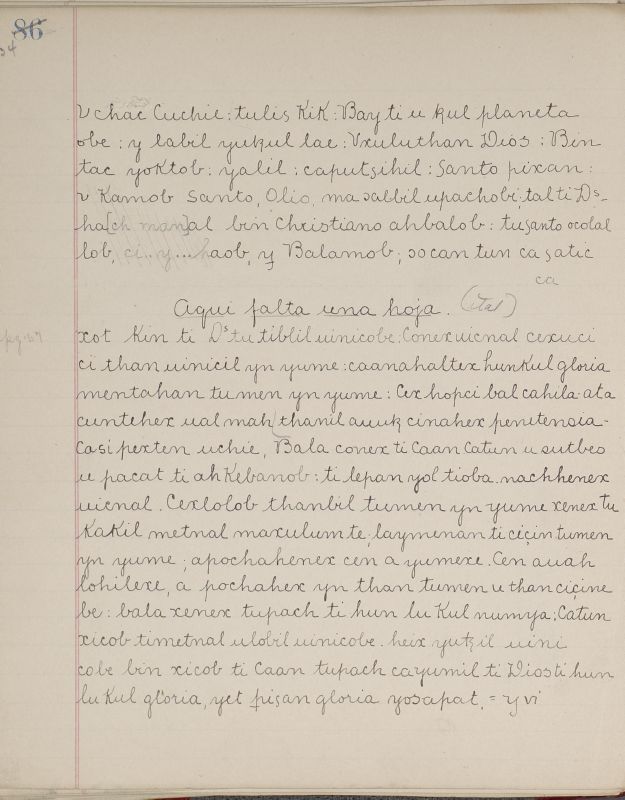 86
34
V chac Cuchie: tulis Kik: Bay ti u kul planeta
obe: y labil yukul lae: Vxuluthan Dios: Bin
tac yoktob: yalil: caputsihil: Santo pixan:
v Kamob Santo, Olio, ma sabbil upachobi, talti Ds_
ha[ch man]al bin Christiano ahbalob: tusanto ocolal
lob, ci..y...haob, y Balamob; socan tun ca satic
ca
Aqui falta una hoja. (Etal)
xot Kin ti Ds tu tiblil uinicobe: Conex uicnal cexuci
pg. 67
ci than uinicil yn yume: caanahaltex hunkul gloria
mentahan tumen yn yume: Cex hopci bal cahila ata
cuntehex ual mah thanil auuk cinahex penitensia-
Casi pexten uchie, Bala conex ti Caan Catun u sutbeo
u pacat ti ah Kebanob: ti lepan yol tioba. nachhenex
uicnal. Cexlolob thanbil tumen yn yume xenex tu
KaKil metnal maxulumte; laymenan ti cicin tumen
yn yume; apochahenex cen a yumexe. Cen auah
lohilexe, a pochahex yn than tumen u than cicine
be: bala xenex tupach ti hun lu Kul numya; Catun
xicob timetnal ulobil uinicobe. heix yutzil uini
cobe bin xicob ti Caan tupach cayumil ti Dios ti hun
lu Kul gloria, yet pisan gloria yosapat, = y vi